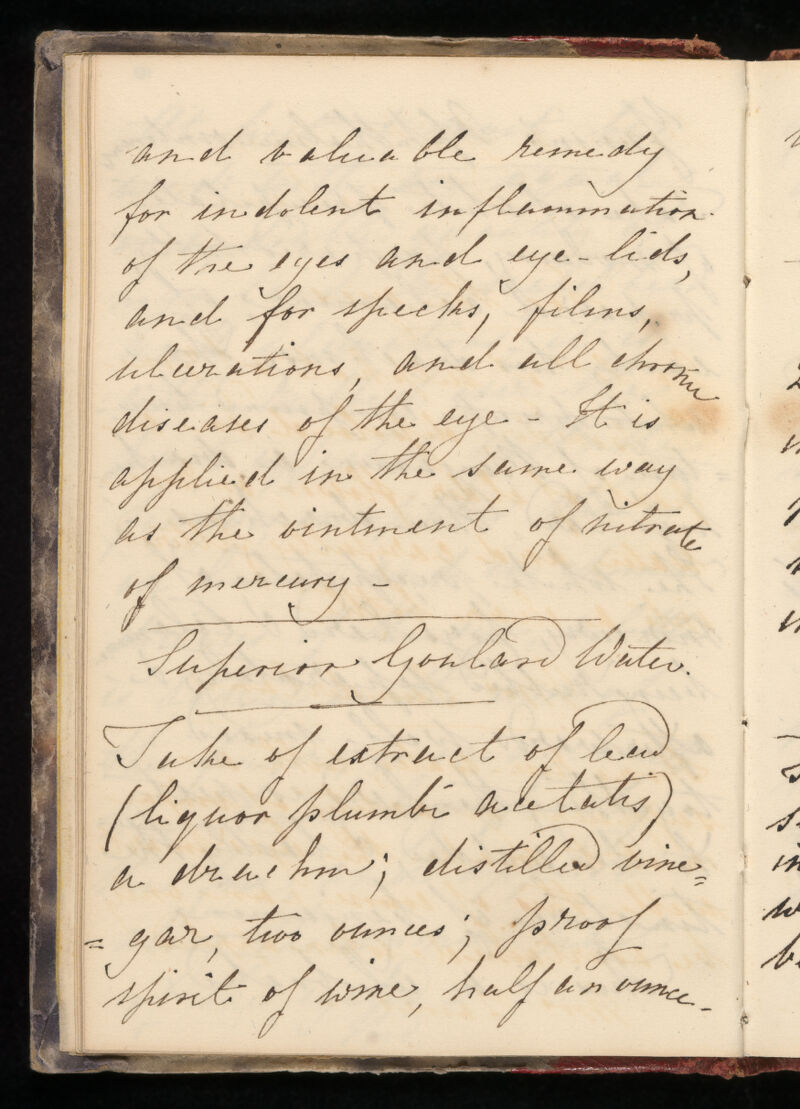 and valuable remedy
for indolent inflammation
of the eyes and eye-lids,
and for specks, films,
ulcerations, and all chronic
diseases of the eye - It is
applied in the same way
as the ointment of nitrate
of mercury -
Superior Goulard Water.
Take of extract of lead
(liquor plumbi acetatis)
a drachm; distilled vine=
=gar, two ounces; proof
spirit of wine, half an ounce -